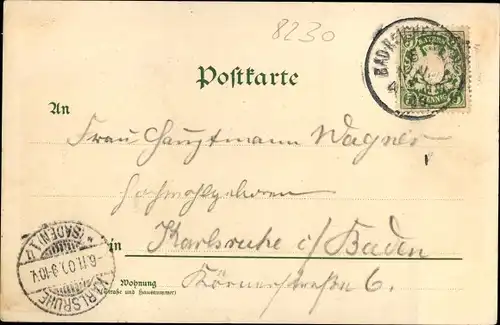 8230
BAD REICH
Postkarte
PFENNIG
An
Frau Hauptmann Wagner
Hochwohlgeboren
in Karlsruhe i/Baden
Wohnung
(Straße und Hausnummer)
Körnerstraße 6.
KARLSRUHE
(BADEN)